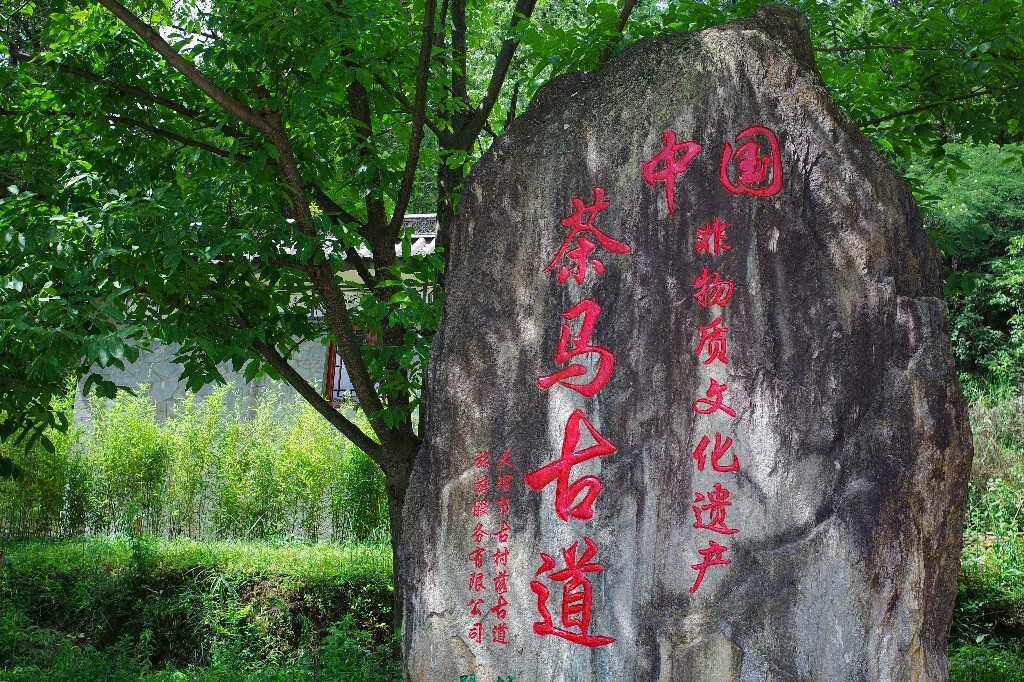 中国
非物质文化遗产
茶马古道
大理市古村荫古道
旅游服务有限公司